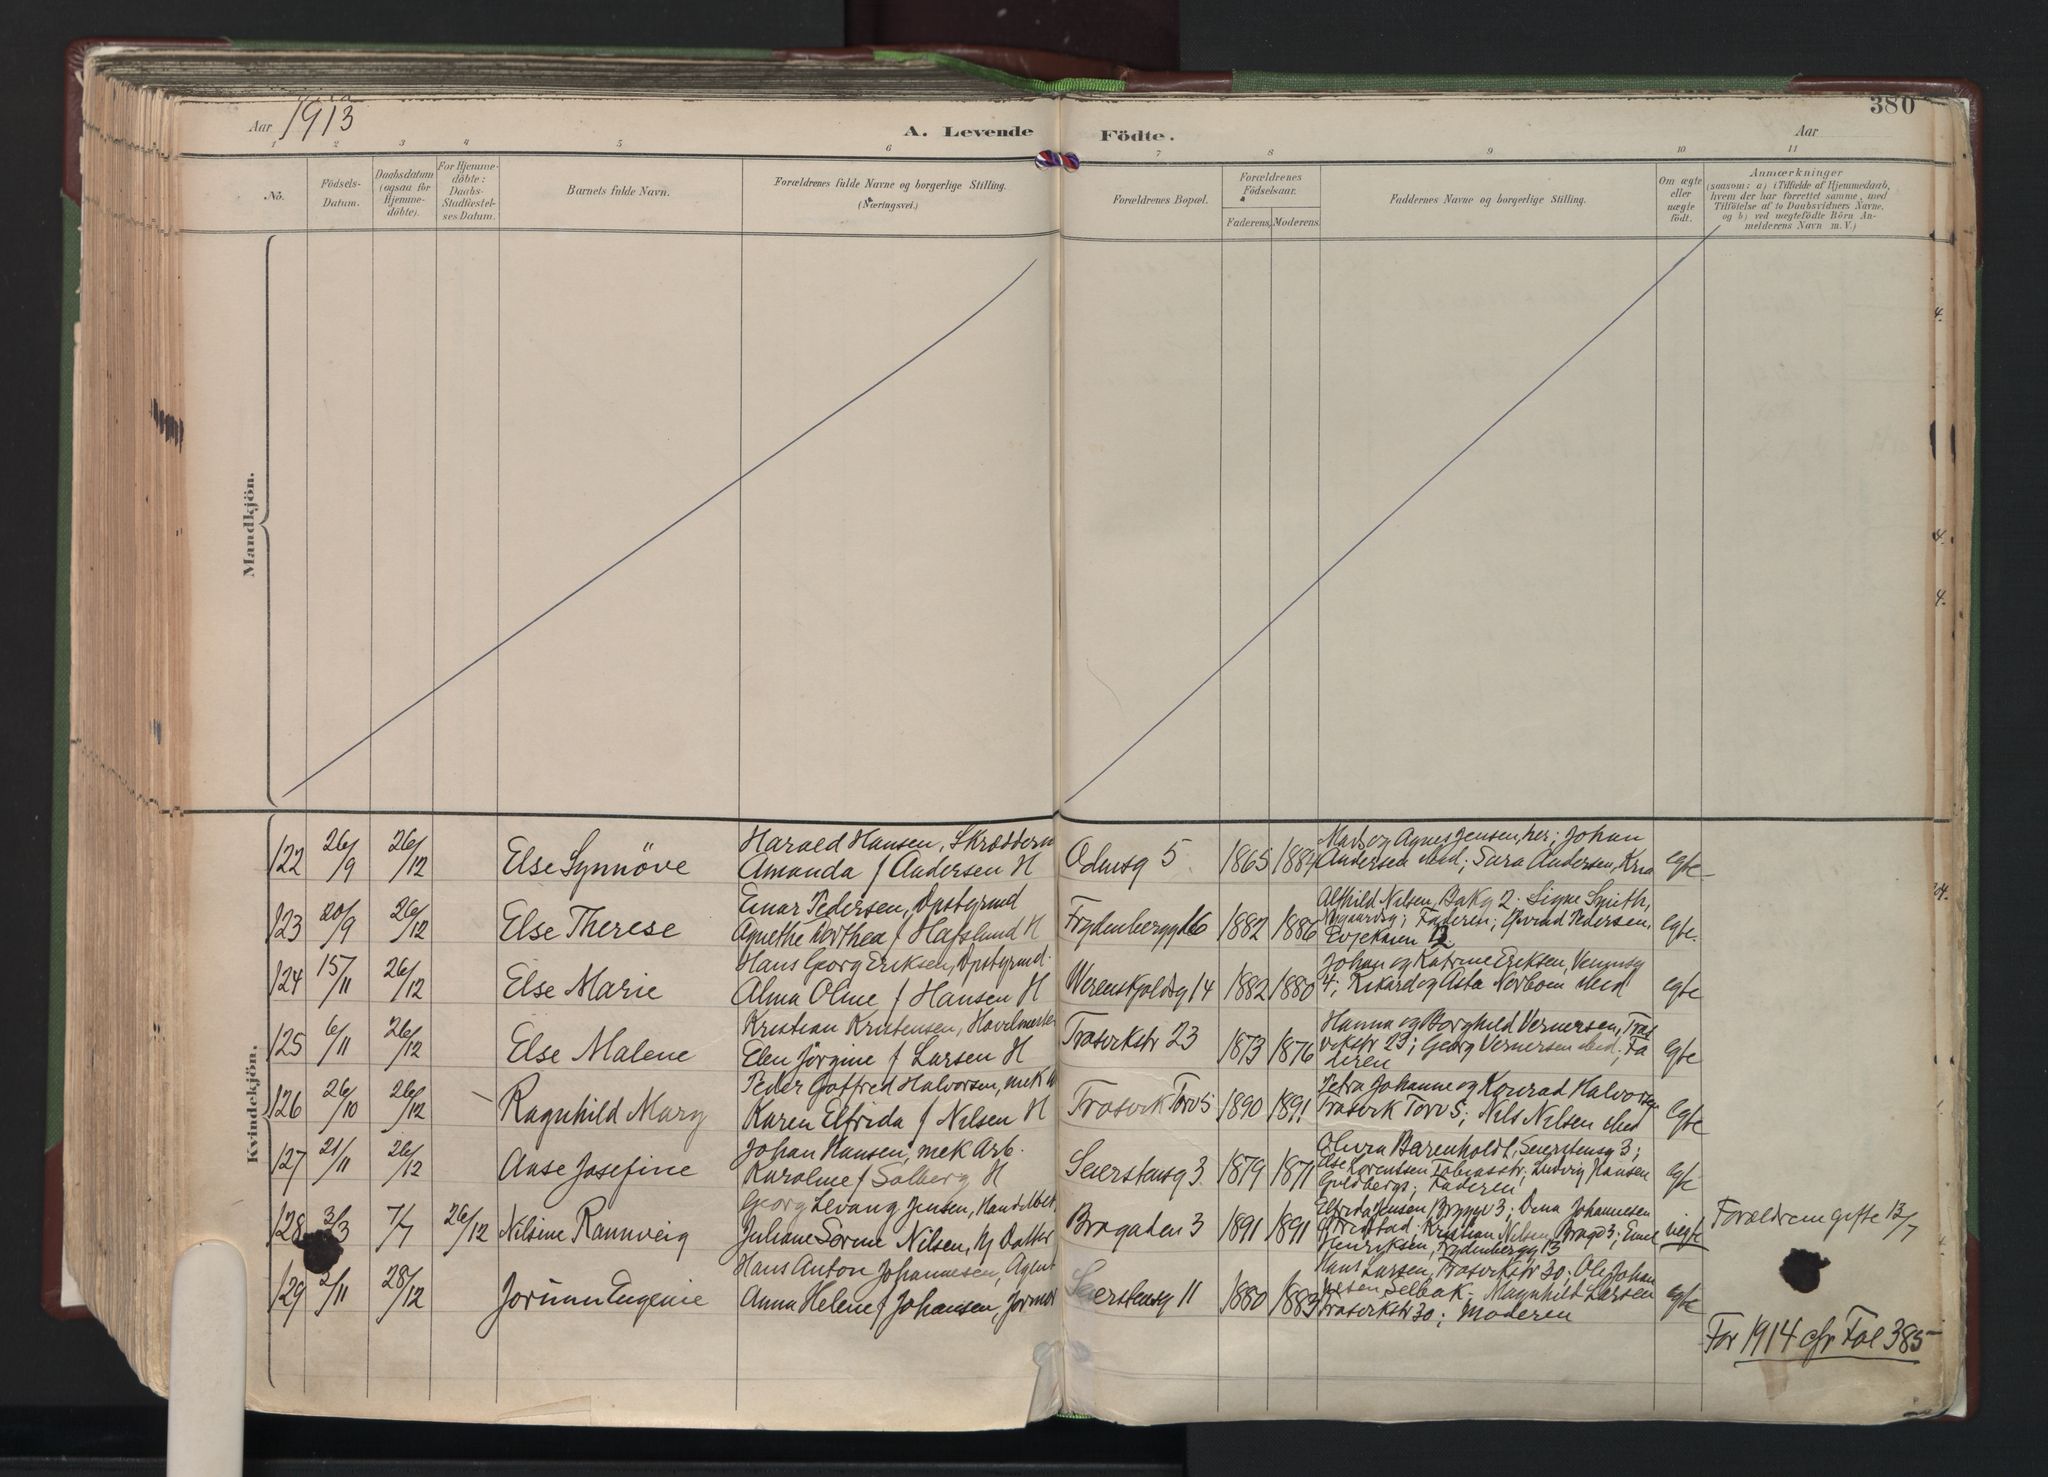 Aar 1913
A. Levende Födte.
Aar
380
1 2 3 4 5 6 7 8 9 10 11
No.
Födsels-
Datum.
Daabsdatum
(ogsaa for
Hjemme-
döbte).
For Hjemme-
döbte:
Daabs-
Stadfæstel-
ses Datum.
Barnets fulde Navn.
Forældrenes fulde Navne og borgerlige Stilling.
(Næringsvei.)
Forældrenes Bopæl.
Forældrenes
Födselsaar.
Faderens. Moderens.
Faddernes Navne og borgerlige Stilling.
Om ægte
eller
uægte
födt.
Anmærkninger
(saasom: a) i Tilfælde af Hjemmedaab,
hvem der har forrettet samme, med
Tilföielse af to Daabsvidners Navne,
og b) ved uægtefödte Börn An-
melderens Navn m. V.)
Mandkjön.
Kvindekjön.
122 26/9 26/12 Else Synnöve
Harald Hansen, Skrædderm
Amanda f Andersen H
5 1865
og Agnes Jensen, her; Johan
Andersen ibid; Sara Andersen, Kria
egte
123 20/9 26/12 Else Therese
Einar Pedersen,
Agnethe Dorthea f Hafslund H
Frydenbergg 16 1882 1886
Alfhild Nilsen, Bakg 2. Signe Smith,
Faderen; Pedersen,
egte
124 15/11 26/12 Else Marie
Hans Georg Eriksen,
Alma Oline f Hansen H
Werenskjoldsg 14 1882 1880
Johan og Katrine Eriksen,
4; Rikard og Asta ibid
egte
125 6/11 26/12 Else Malene
Kristian Kristensen,
Elen Jörgine f Larsen H
Trosvikstr 23 1873 1876
Hanna og Borghild Vernersen, Tros
vikstr 23; Georg Vernersen ibid; Fa
deren
egte
126 26/10 26/12 Ragnhild Marg
Peder Gotfred Halvorsen, mek
Karen Elfrida f Nilsen H
Trosvik Torv 5 1890 1891
Petra Johanne og Konrad Halvorsen
Trosvik Torv 5; Nils Nilsen ibid
egte
127 21/11 26/12 Aase Josefine
Johan Hansen, mek Arb.
Karoline f Solberg H
Seierstensg 3 1879 1871
Olivia Barenholdt, Seierstensg 3;
Else Lorentsen Tobiasstr, Ludvig Hansen
Guldbergs; Faderen
128 3/3 7/7 26/12 Nilsine Rannveig
Georg Levang Jensen,
Juliane Sörine Nilsen, Datter
Brogaden 3 1891 1891
Elfrida Jensen, 3; Johannesen
Kristian Nilsen, Brogd 3;
Henriksen, Frydenbergg 13
uegte
Forældrene gifte 13/7
129 2/11 28/12 Jorunn Eugenie
Hans Anton Johannesen, Agent
Anna Helene f Johansen,
Seierstensg 11 1880 1883
Hans Larsen, Trosvikstr 30; Ole Johan
Selbak; Magnhild Larsen
Trosvikstr 30; Moderen
egte
For 1914 cfr Fol 385